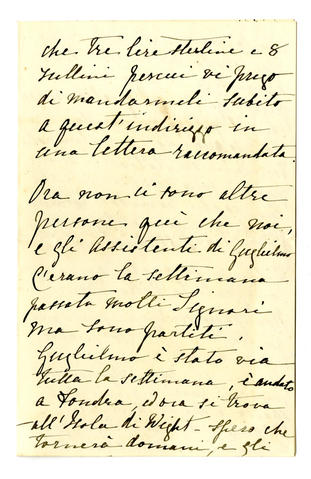 che tre lire sterline e 8
scellini percui vi prego
di mandarmeli subito
a quest'indirizzo in
una lettera raccomandata.
Ora non ci sono altre
persone qui che noi,
e gli Assistenti di Guglielmo
C'erano la settimana
passata molti Signori
ma sono partiti.
Guglielmo è stato via
tutta la settimana, è andato
a Londra, ed ora si trova
all'Isola di Wight - spero che
tornerà domani, e gli